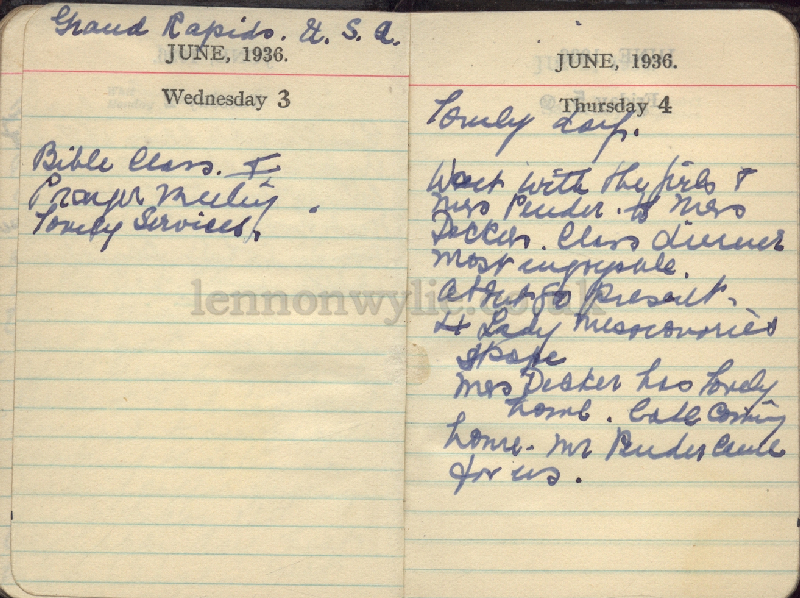 Grand Rapids. U. S. A.
JUNE, 1936.
Wednesday 3
Bible Class. &
Prayer Meeting.
Lovely Services.
JUNE, 1936.
Thursday 4
Lovely Day.
Went with the girls &
Mrs Pender. to Mrs
Deckers. Class dinner
most enjoyable.
about 50 present.
4 Lady Missionaries
spoke
Mrs Decker has lovely
home. Cold coming
home. Mr Pender came
for us.
lennonwylie.co.uk